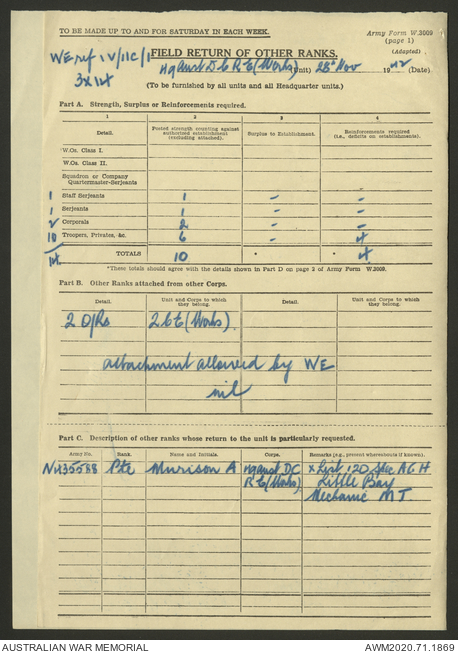 TO BE MADE UP TO AND FOR SATURDAY IN EACH WEEK.
Army Form W.3009
(page 1)
(Adapted)
WE ref IV/11C/1
3 x 14
FIELD RETURN OF OTHER RANKS.
Hq Aust D C R E (Works) (unit) 28th Nov 1942 (Date)
(To be furnished by all units and all Headquarter units.)
Part A. Strength, Surplus or Reinforcements required.
1 2 3 4
Detail. Posted strength counting against authorized establishment (excluding attached). Surplus to Establishment. Reinforcements required (i.e., deficits on establishments).
W.Os. Class I.
W.Os. Class II.
Squadron or Company
Quartermaster-Serjeants
1 Staff Serjeants 1 - -
1 Serjeants 1 - -
2 Corporals 2 - -
10 Troopers, Privates, &c. 6 - 4
14 TOTALS 10 * * 4
*These totals should agree with the details shown in Part D on page 2 of Army Form W.3009.
Part B. Other Ranks attached from other Corps.
Detail. Unit and Corps to which they belong. Detail. Unit and Corps to which they belong.
2 O/Rs 2 CE (Works).
attachment allowed by WE
nil
Part C. Description of other ranks whose return to the unit is particularly requested.
Army No. Rank. Name and Initials. Corps. Remarks (e.g., present whereabouts if known).
Pte Murison A Hq Aust DC x List 120 Spec AGH
R E (Works) Little Bay
Mechanic MT
AUSTRALIAN WAR MEMORIAL
AWM2020.71.1869